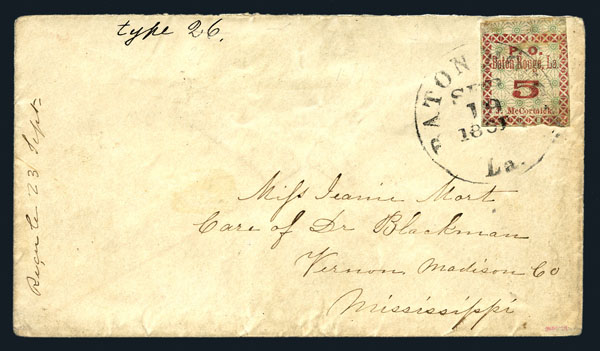 type 26.
P. O.
Baton Rouge, La.
5
J. McCormick.
BATON
SEP
19
1861
La.
Miss Jeanie Mort
Care of Dr Blackman
Vernon Madison Co
Mississippi
23 Sept.